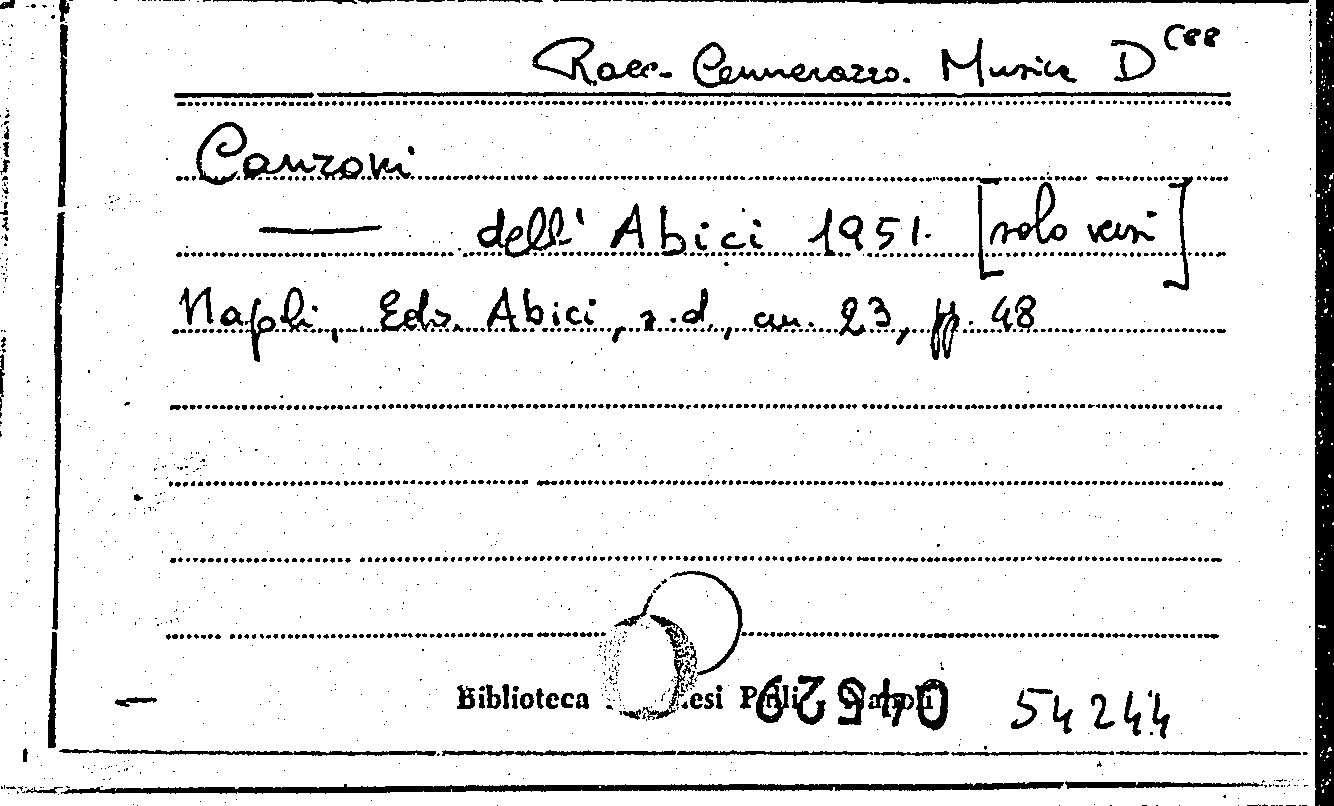 Racc. Cennerazzo. Musica D (88
Canzoni
—— dell' Abici 1951. [solo versi]
Napoli, Ediz. Abici, s.d., an. 23, pp. 48
Biblioteca Napoli 54244